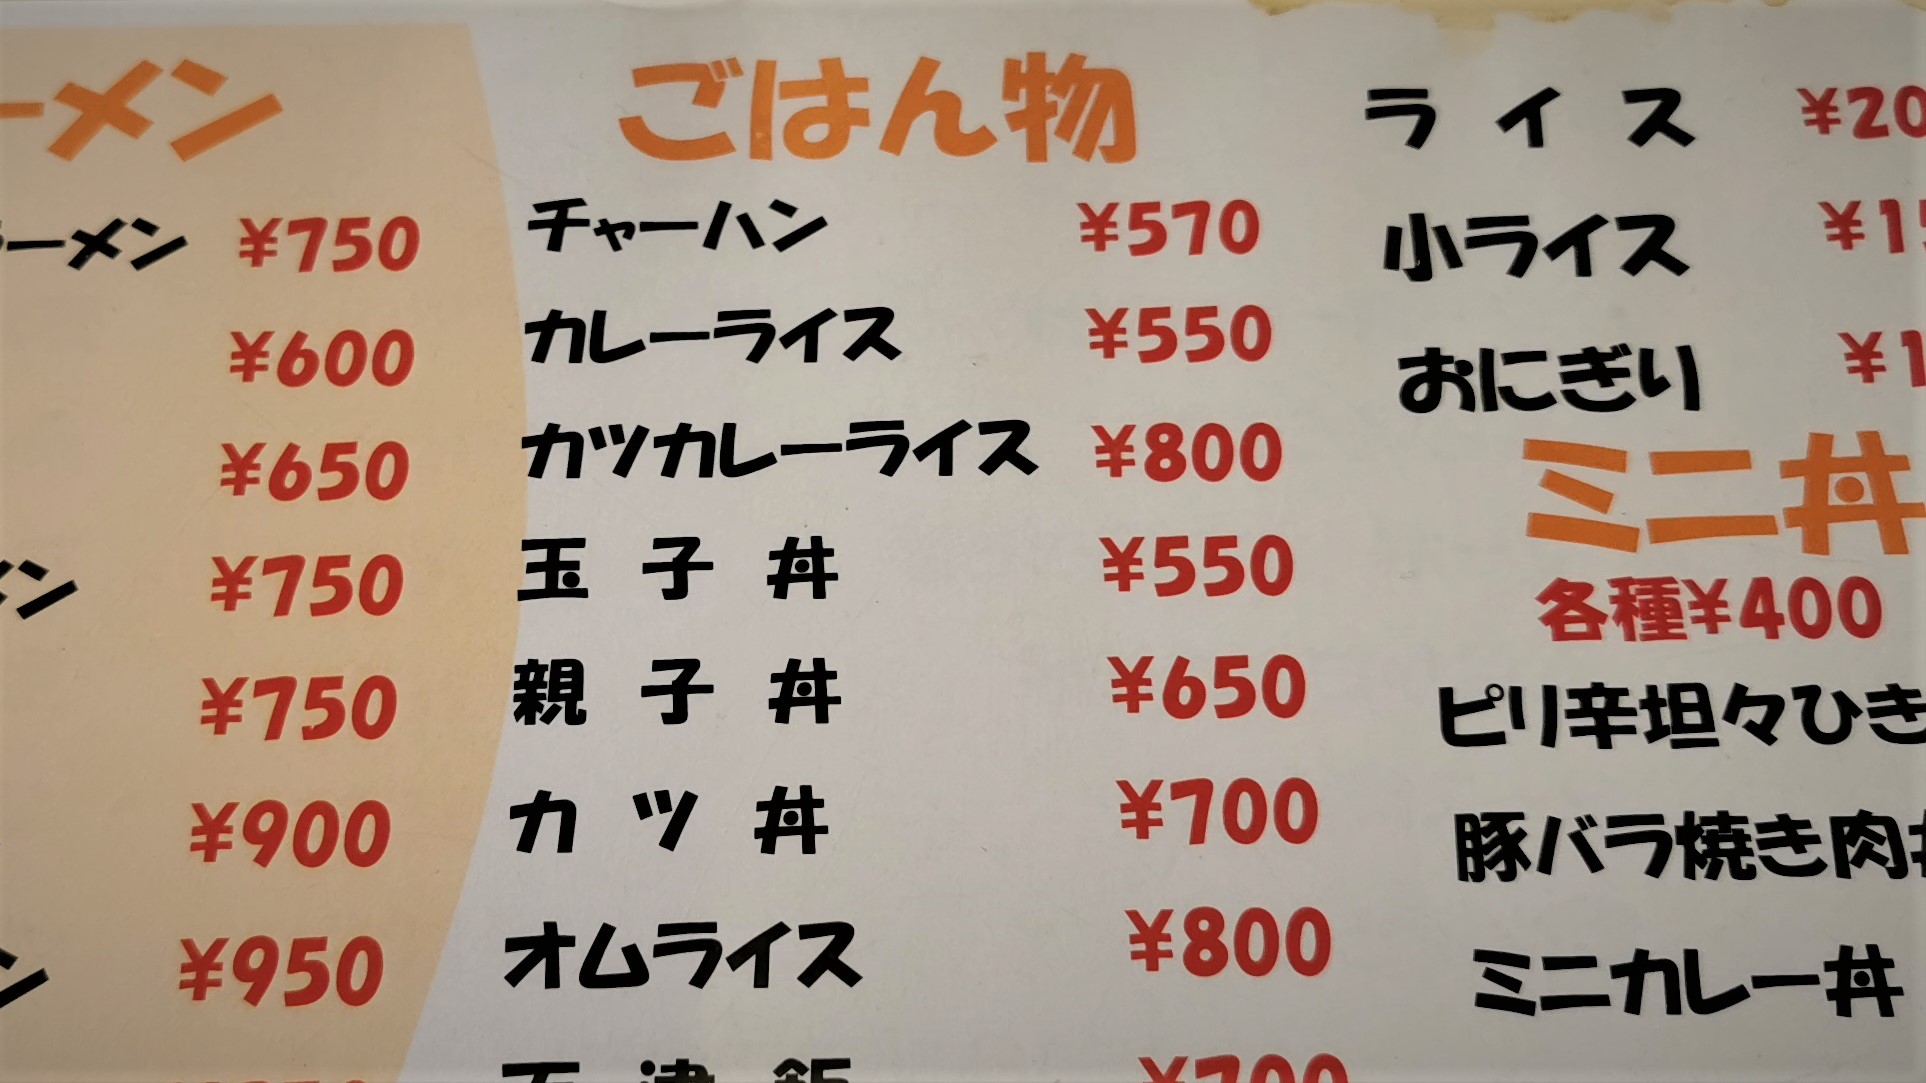 ーメン
ーメン ¥750
¥600
¥650
メン ¥750
¥750
¥900
ン ¥950
ごはん物
チャーハン ¥570
カレーライス ¥550
カツカレーライス ¥800
玉子丼 ¥550
親子丼 ¥650
カツ丼 ¥700
オムライス ¥800
天津飯 ¥700
ライス ¥20
小ライス ¥15
おにぎり ¥1
ミニ丼
各種¥400
ピリ辛坦々ひき
豚バラ焼き肉丼
ミニカレー丼